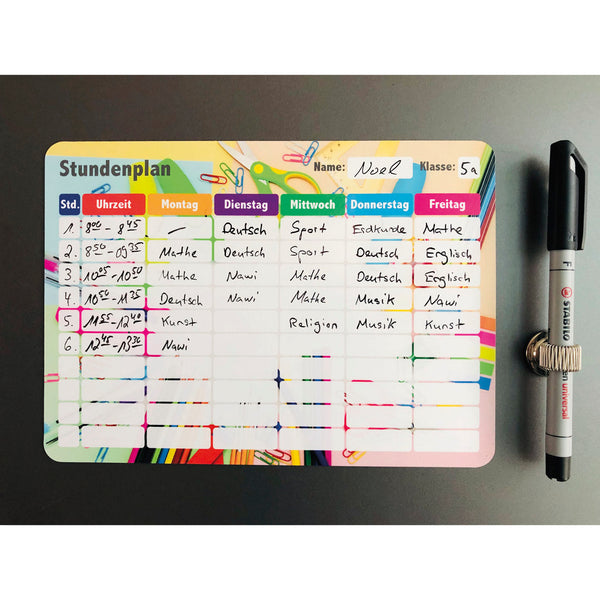 Stundenplan Name: Noel Klasse: 5a
Std. Uhrzeit Montag Dienstag Mittwoch Donnerstag Freitag
1. 8⁰⁰ - 8⁴⁵ - Deutsch Sport Erdkunde Mathe
2. 8⁵⁰ - 09³⁵ Mathe Deutsch Sport Deutsch Englisch
3. 10⁰⁵ - 10⁵⁰ Mathe Nawi Mathe Deutsch Englisch
4. 10⁵⁰ - 11³⁵ Deutsch Nawi Mathe Musik Nawi
5. 11⁵⁵ - 12⁴⁰ Kunst Religion Musik Kunst
6. 12⁴⁵ - 13³⁰ Nawi
F
STABILO
universal